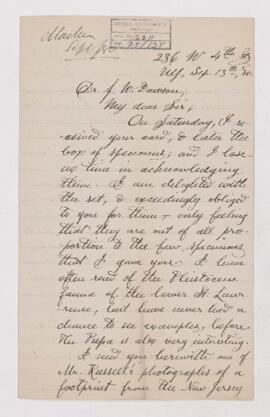 236 W. 4th St.
Sep. 13th,
Dr. J. W. Dawson,
My dear Sir;
On Saturday, I re-
ceived your card, & later the
box of specimens; and I lose
no time in acknowledging
them. I am delighted with
the set, & exceedingly obliged
to you for them – only feeling
that they are out of all pro-
portion to the few specimens
that I gave you. I have
often read of the Pleistocene
fauna of the lower St Law-
rence, but have never had a
chance to see examples, before.
The Pupa is also very interesting.
I send you herewith one of
Mr. Russell's photographs of a
footprint from the New Jersey